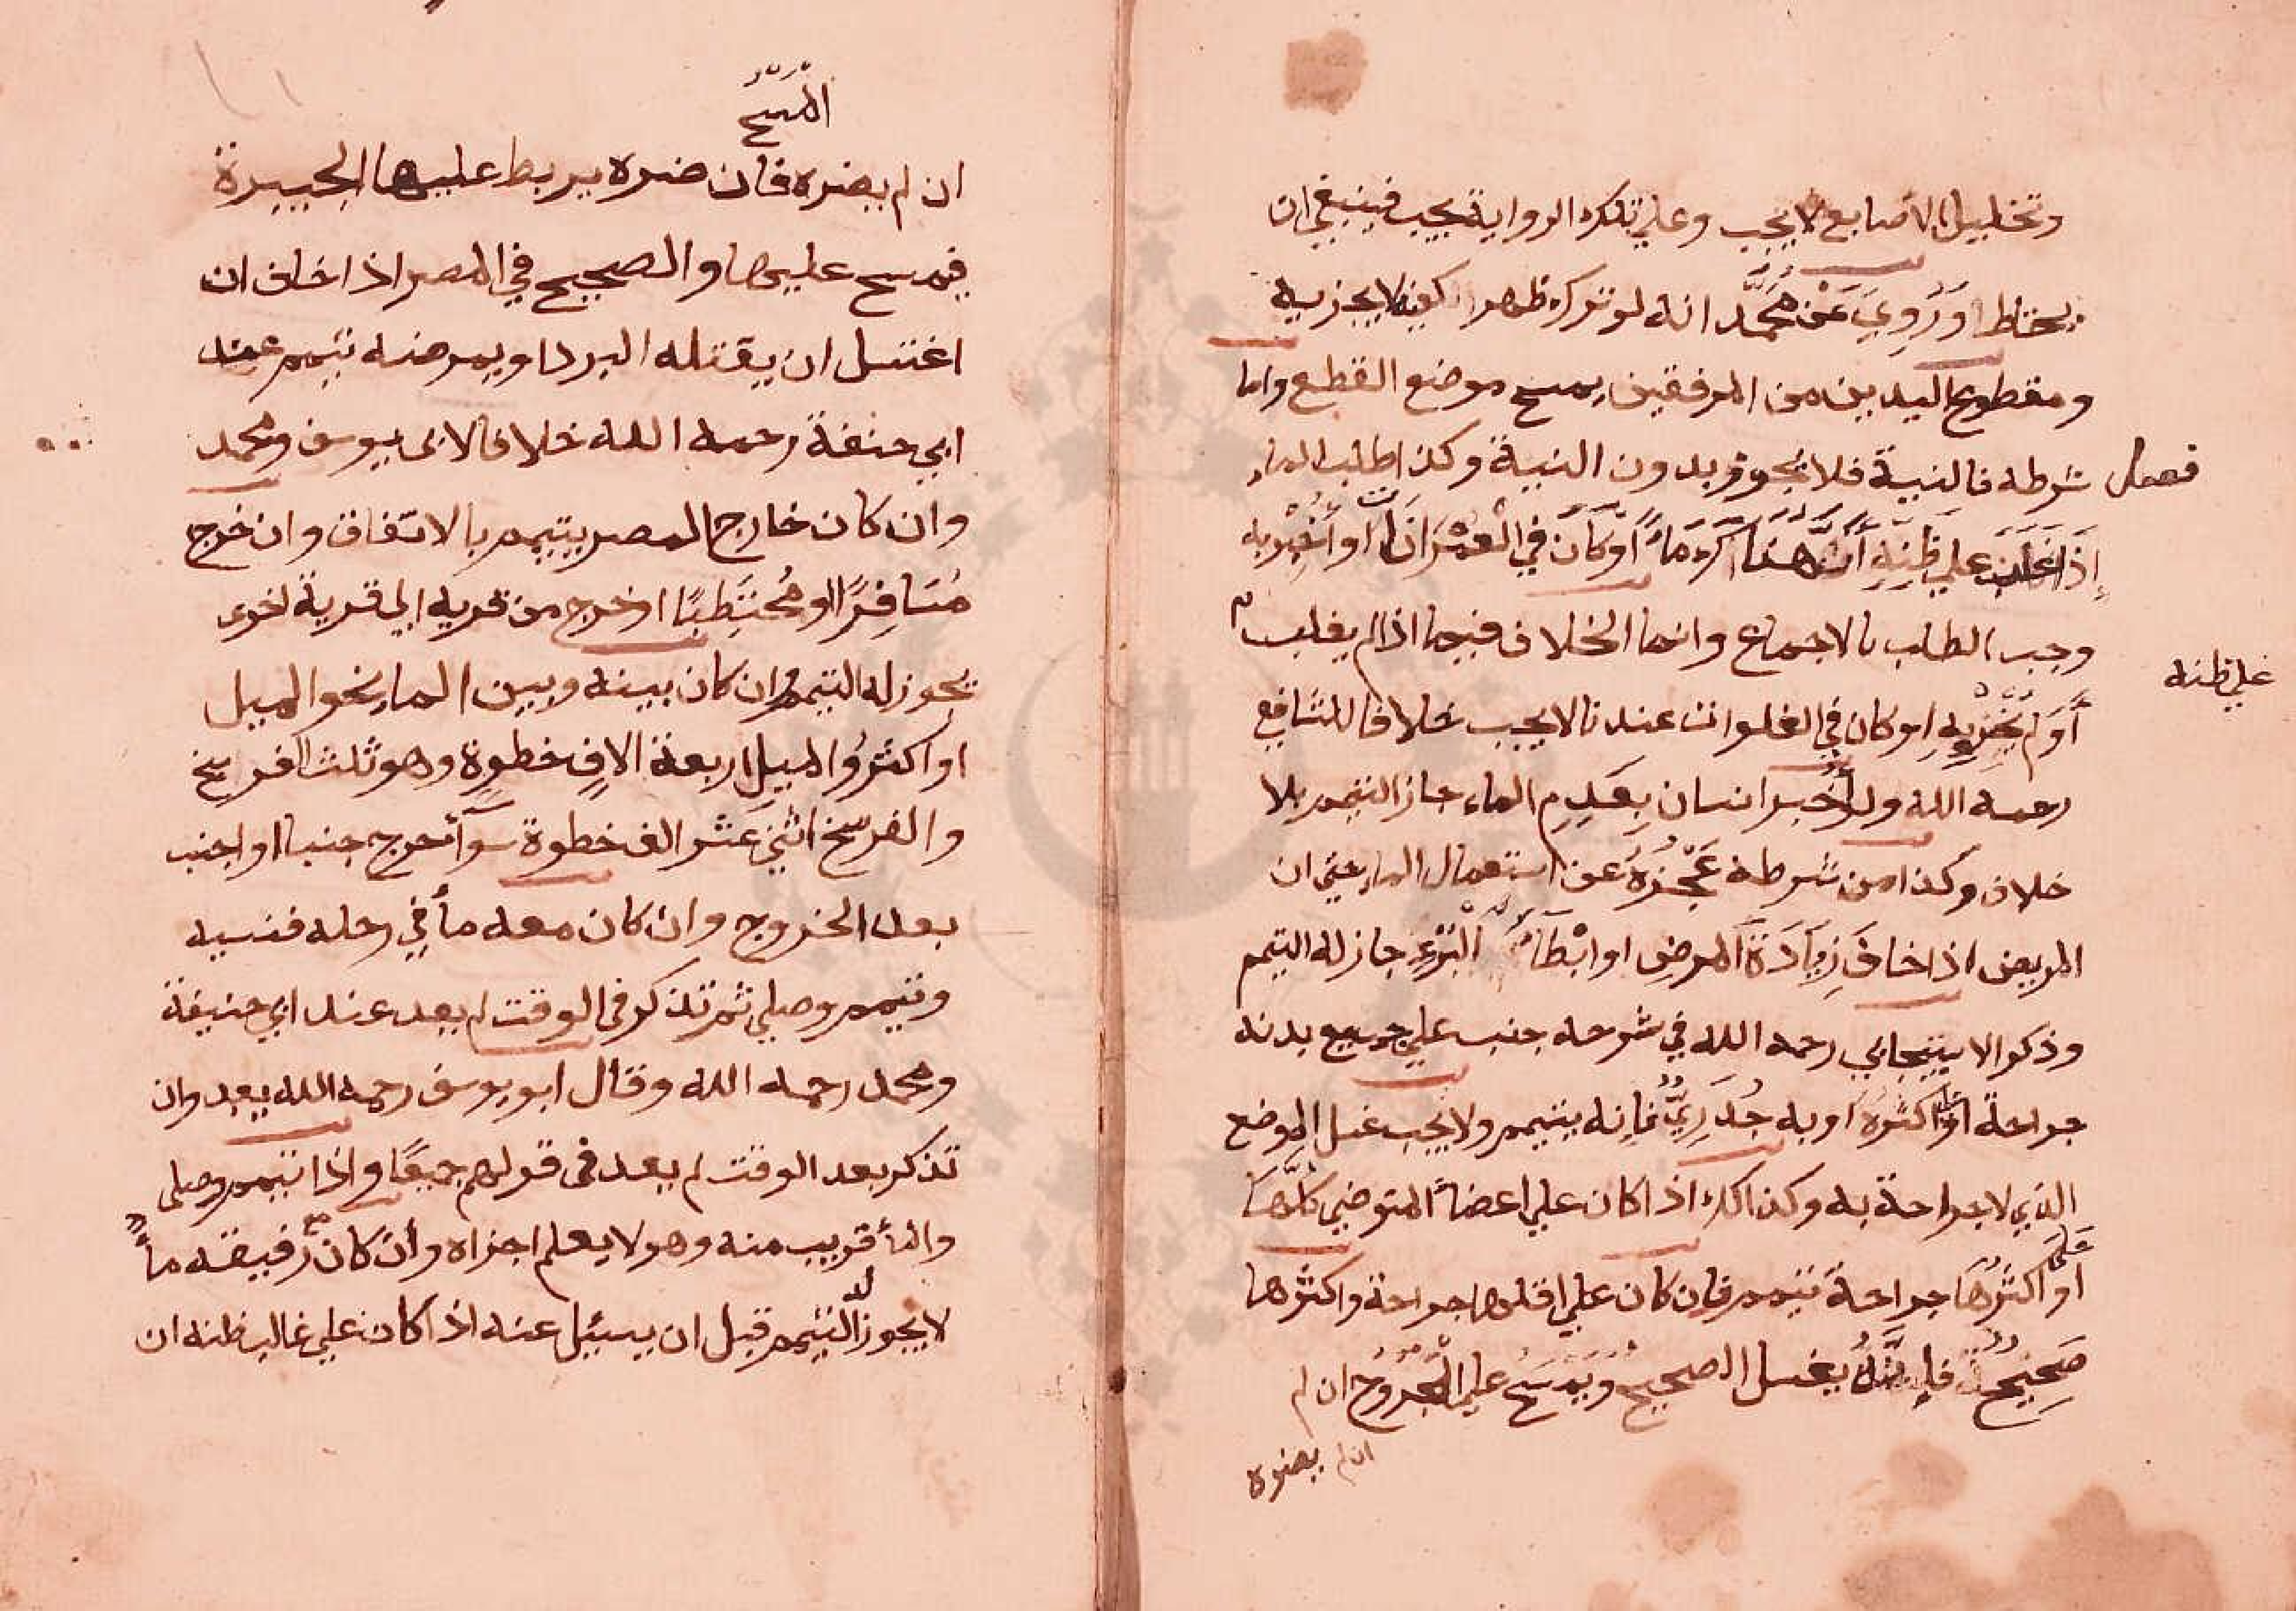 وتخليل الاصابع لا يجب وعلي تلك الرواية يجب فينبغي ان
يحتاط وَرُوِيَ عَنْ مُحَمَّد انه لو ترك ظهر كفيه لا يجزيه
ومقطوع اليدين من المرفقين يمسح موضع القطع واما
فصل
شرطه فالنية فلا يجوز بدون النية وكذا طلب الماء
إذا غلب علي ظَنِّهِ أَنَّ هناك مَاءً أَوْ كَانَ فِي الْعُمْرَانَاتِ او أُخْبِرَ به
وجب الطلب بالاجماع وانما الخلاف فيما اذا لم يغلب
علي ظنه
أَوْ لم يُخْبَر به او كان في الفلوات عندنا لا يجب خلافا للشافعي
رحمه الله ولو أخبر انسان بِعَدِم الماء جاز التيمم بلا
خلاف وكذا من شرطه عَجْزُهُ عن استعمال الماء حتي ان
المريض اذا خاف زِيَادَةَ المرض او ابْطَاءَ الْبُرْءِ جاز له التيمم
وذكر الاسبيجابي رحمه الله في شرحه جنب علي جميع بدنه
جراحة او اكثره او به جُدَرِيٌّ فإنه يتيمم ولا يجب غسل الموضع
الذي لا جراحة به وكذلك اذا كان علي اعضاء المتوضي كُلِّهَا
او علَي اكثَرُهَا جراحة تيمم فان كان علي اقلها جراحة واكثرها
صَحِيحَةٌ فإِنَّهُ يغسل الصحيح وَيَمْسَحُ علي الْمَجْرُوحِ ان لم
ان لم يضره
الْمَسْحُ
ان لم يضره فان ضره يربط عليها الجبيرة
فيمسح عليها والصحيح في المصر اذا خاف ان
اغتسل ان يقتله البرد او يمرضه تيمم عند
ابي حنفة رحمه الله خلافا لابى يوسف ومحمد
وان كان خارج المصر يتيمم بالاتفاق وان خرج
مُسَافِرًا او مُحْتَطِبًا او خرج من قريه الي قرية اخرى
يجوز له التيمم ان كان بينه وبين الماء نحو الميل
او اكثرُ والميل اربعة الافِ خطوة وهو ثلث الفرسخ
والفرسخ اثني عَشر الف خطوة سوآء خرج جنبا او اجنب
بعد الخروج وان كان معه ماء في رحله فنسيه
وتيمم وصلي ثم تذكر في الوقت لم يعد عند ابي حنيفة
ومحمد رحمه الله وقال ابو يوسف رحمه الله يعيد وان
تذكر بعد الوقت لم يعد في قولهم جميعًا واذا تيمم وصلى
والماء قريب منه وهو لا يعلم اجزاه وأن كان مع رفيقه ماءً
لا يجوز له التيمم قبل ان يسئل عنه اذا كان علي غالب ظنه ان